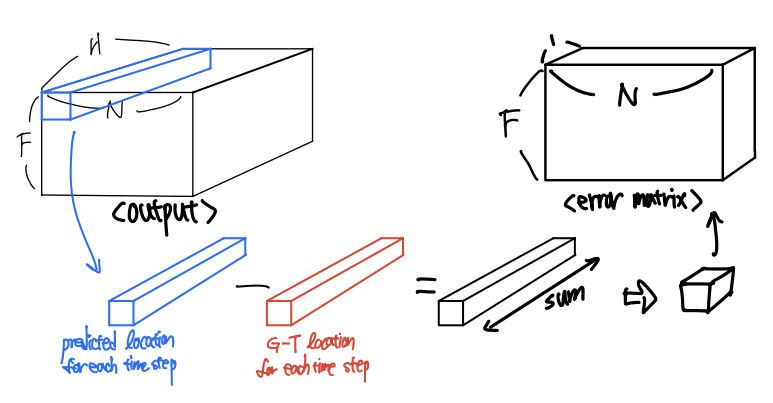 H
N
F
<output>
1
N
F
<error matrix>
predicted location
for each time step
-
G-T location
for each time step
=
sum